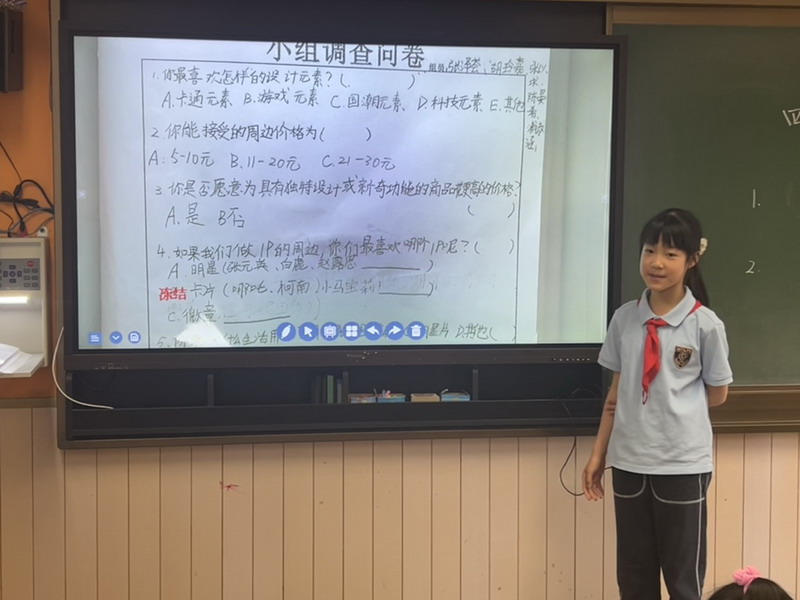 小组调查问卷
组员:
1.你最喜欢怎样的设计元素?( )
A.卡通元素 B.游戏元素 C.国潮元素 D.科技元素 E.其他
2.你能接受的周边价格为( )
A:5-10元 B.11-20元 C.21-30元
3.你是否愿意为具有独特设计或新奇功能的商品更高的价格?
A.是 B否 ( )
4.如果我们做IP的周边,你们最喜欢哪 IP呢?( )
A.明星(张元英、白鹿、赵露思 )
冻结 卡片(哪吒、柯南)小马宝莉 )
C.徽章.
5. D.其他( )
1.
2.